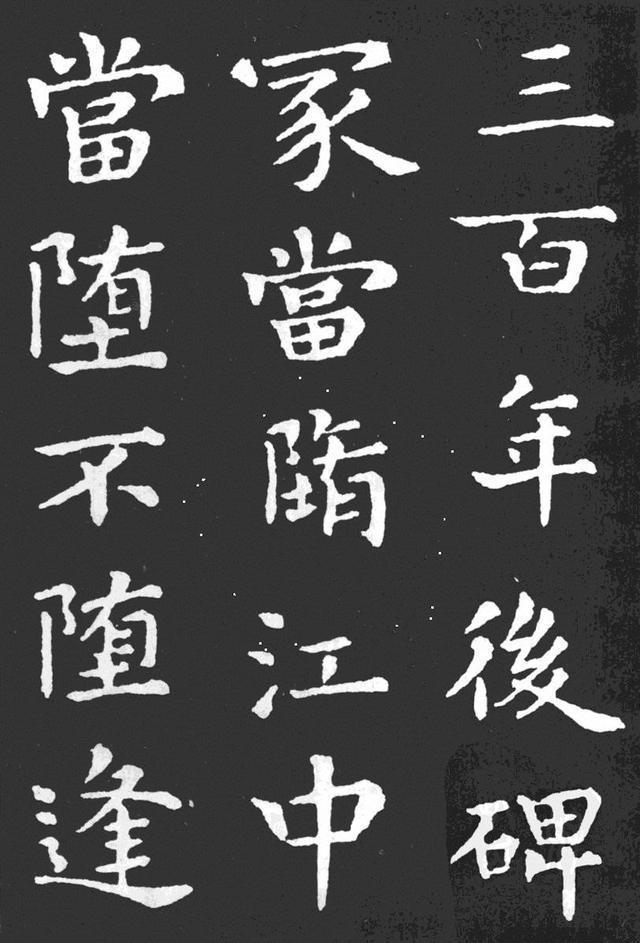 三百年後碑
冢當隋江中
當堕不堕逢